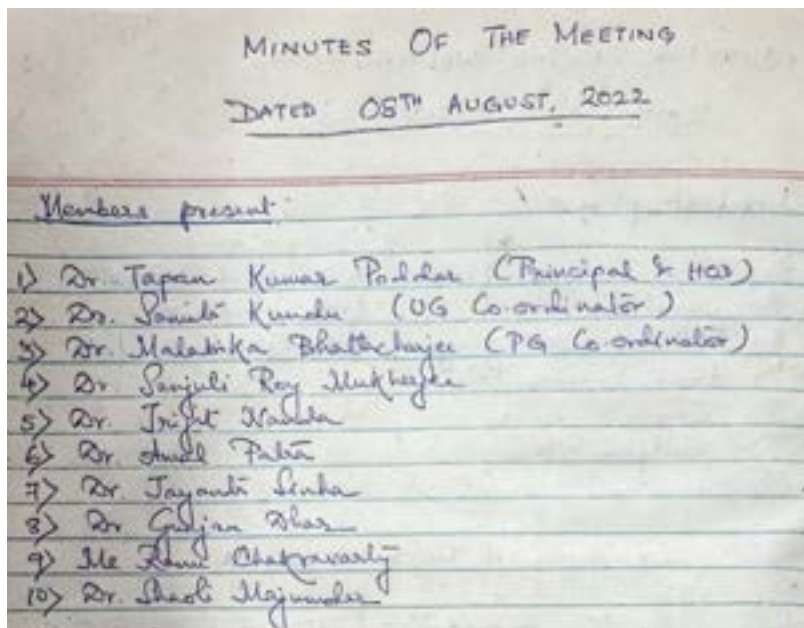 MINUTES OF THE MEETING
DATED 08TH AUGUST, 2022
Members present:
1) Dr. Tapan Kumar Poddar (Principal & HOD)
2) Dr. Kundu (UG Co-ordinator)
3) Dr. Malabika Bhattacharjee (PG Co-ordinator)
4) Dr. Sanjuli Roy Mukherjee
5) Dr. Nanda
6) Dr. Amal Patra
7) Dr. Jayanta Sinha
8) Dr Gunjan Dhar
9) Chakravarty
10) Dr. Shaoli Majumder